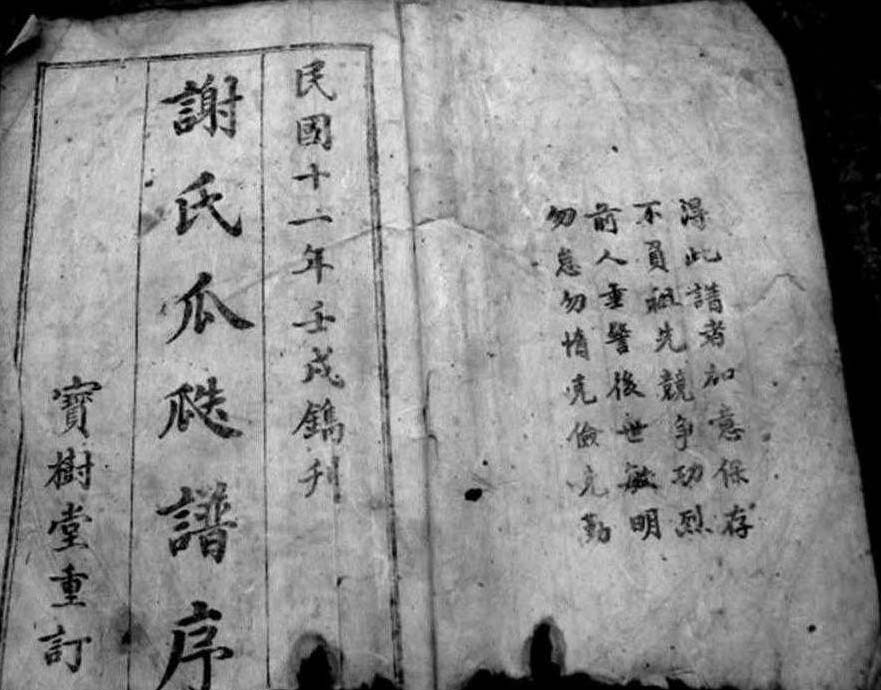 淂此譜者加意保存
不負祖先競爭功烈
前人垂警後世敏明
勿怠勿惰克儉克勤
民國十一年壬戌鐫刋
謝氏瓜瓞譜序
寶樹堂重訂